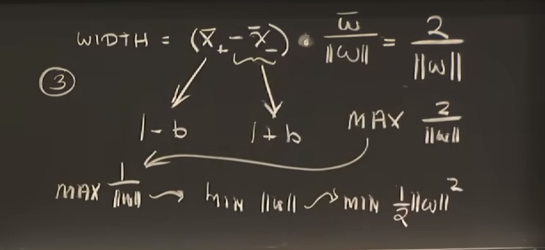 WIDTH = (x̄₊ - x̄₋) · w̄/||w|| = 2/||w||
③
1 - b 1 + b MAX 2/||w||
MAX 1/||w|| → MIN ||w|| → MIN 1/2 ||w||²